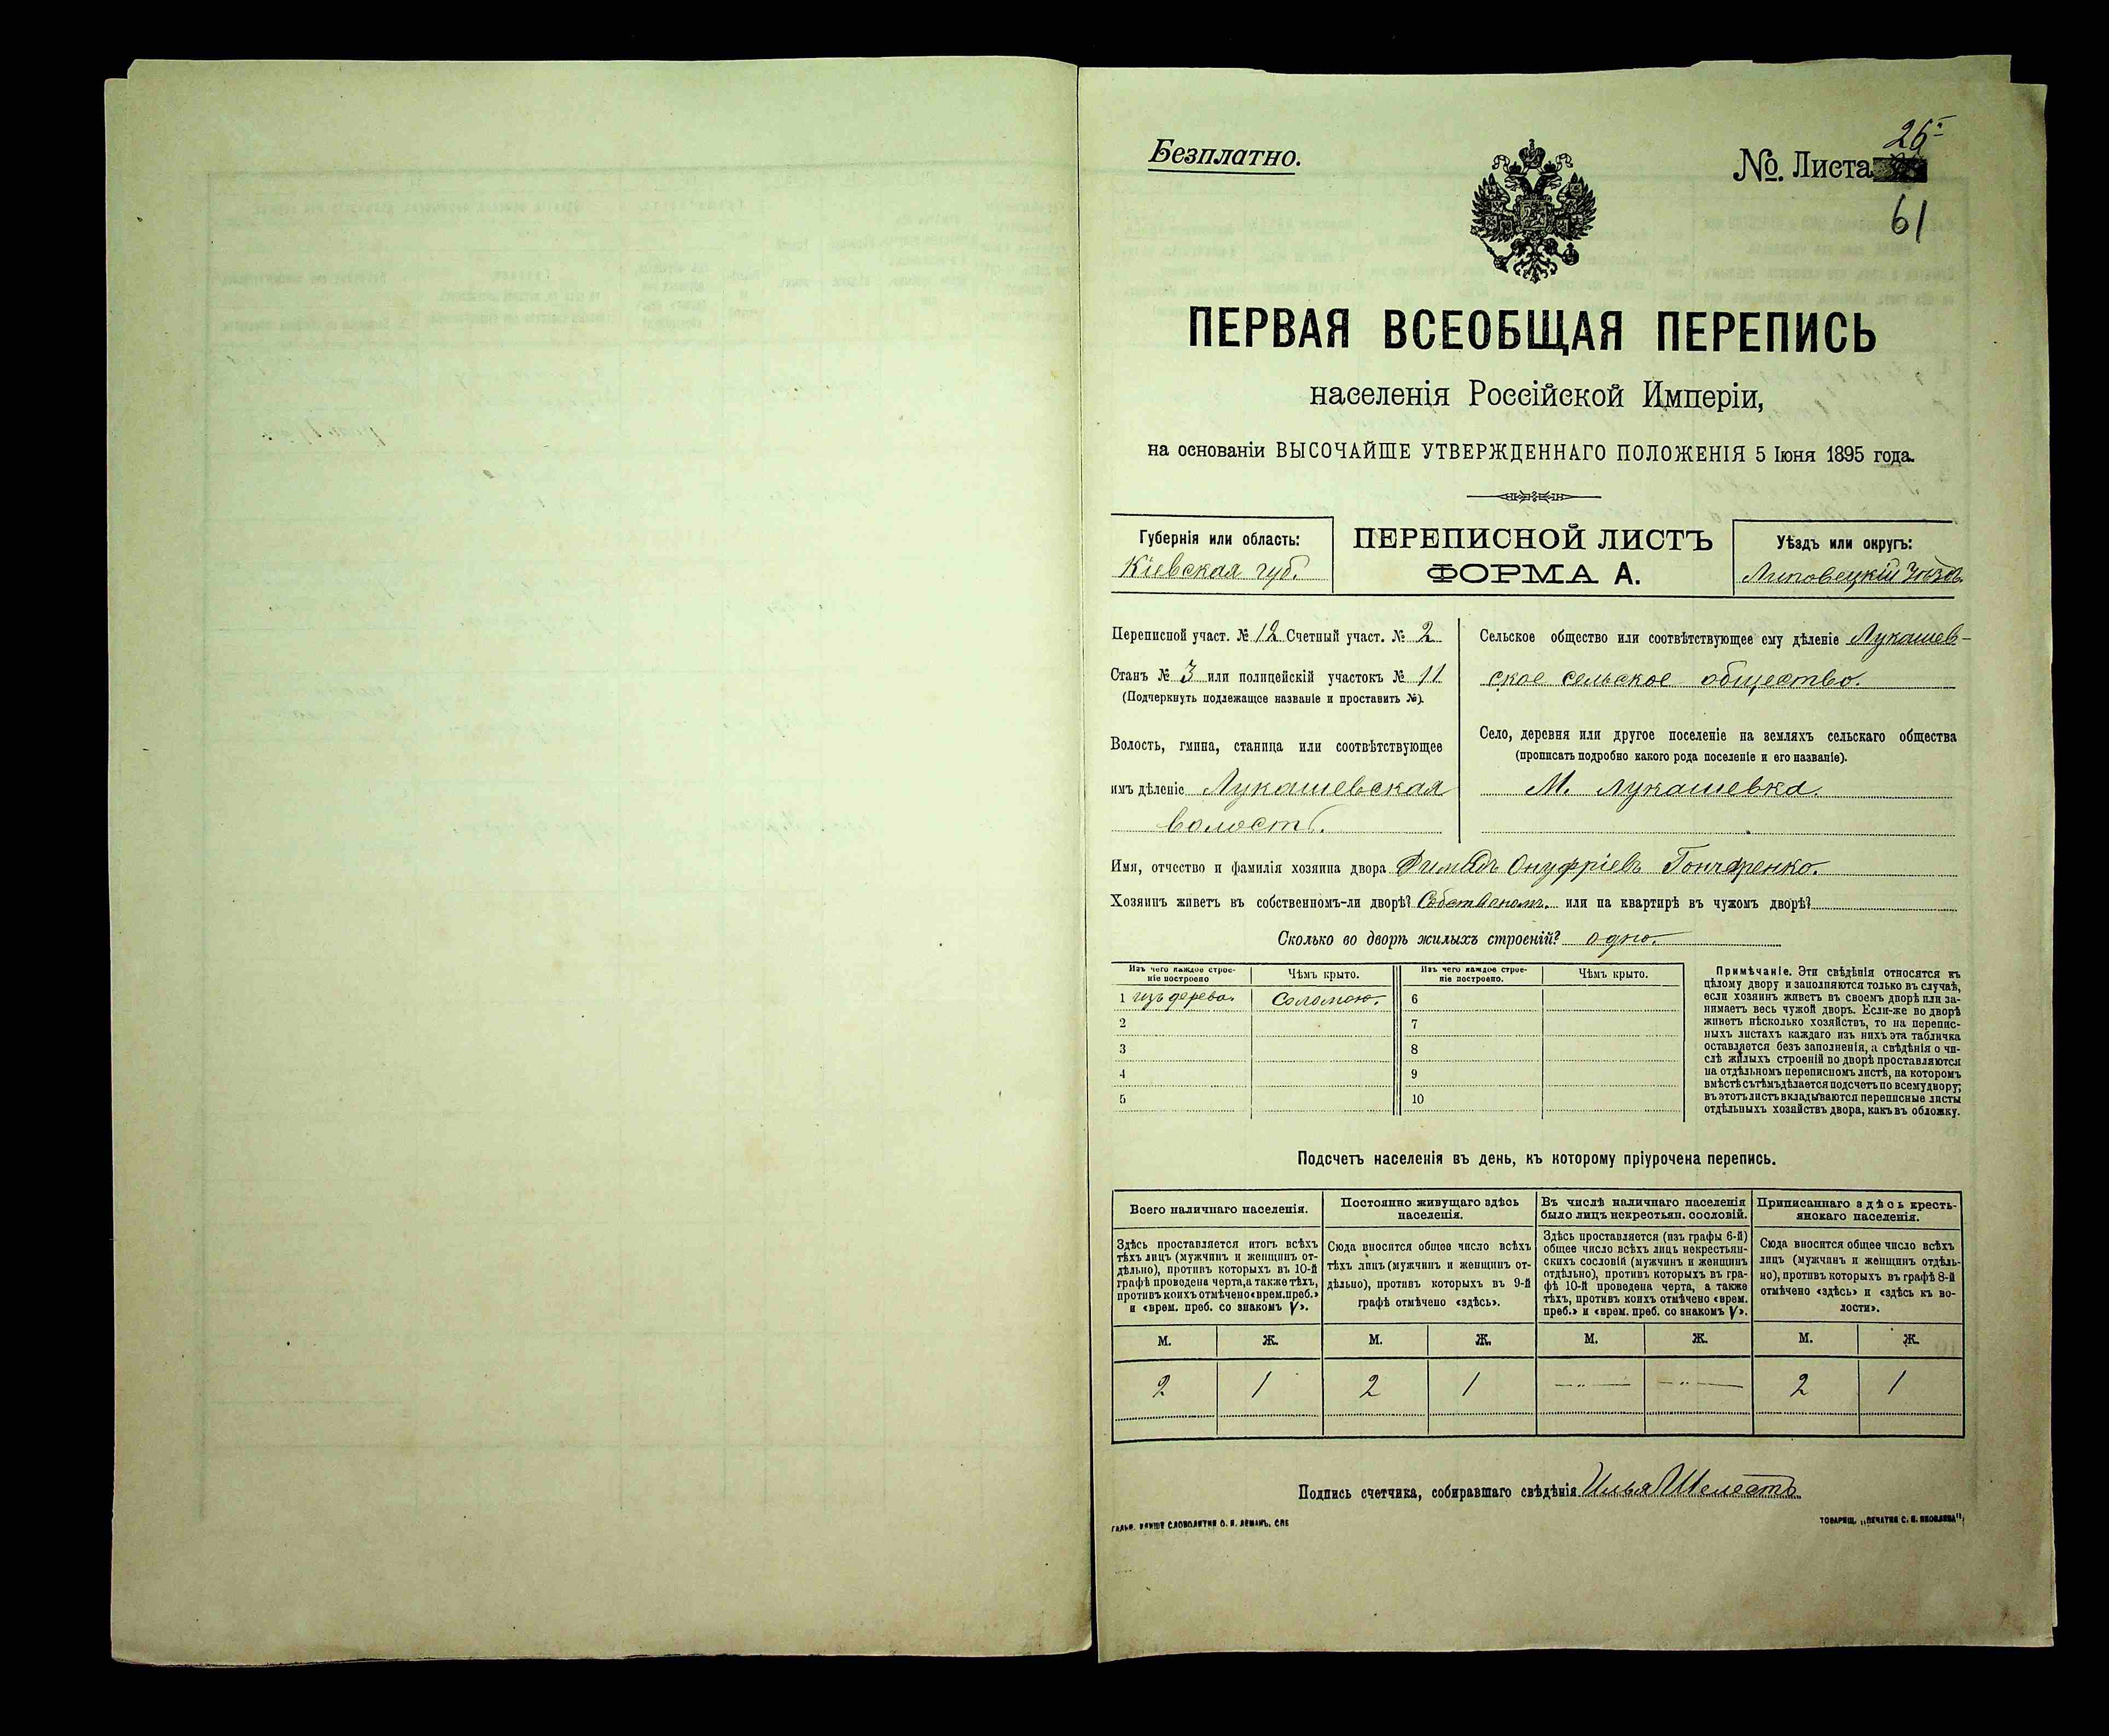 Безплатно.
25
№. Листа
61
ПЕРВАЯ ВСЕОБЩАЯ ПЕРЕПИСЬ
населенія Россійской Имперіи,
на основаніи ВЫСОЧАЙШЕ УТВЕРЖДЕННАГО ПОЛОЖЕНІЯ 5 Іюня 1895 года.
Губернія или область:
Кіевская губ.
ПЕРЕПИСНОЙ ЛИСТЪ
ФОРМА А.
Уѣздъ или округъ:
Липовецкій уѣздъ
Переписной участ. № 12 Счетный участ. № 2
Станъ № 3 или полицейскій участокъ № 11
(Подчеркнуть подлежащее названіе и проставить №).
Волость, гмина, станица или соотвѣтствующее
имъ дѣленіе Лукашевская
волость.
Сельское общество или соотвѣтствующее ему дѣленіе Лукашев-
ское сельское общество.
Село, деревня или другое поселеніе на земляхъ сельскаго общества
(прописать подробно какого рода поселеніе и его названіе).
М. Лукашевка.
Имя, отчество и фамилія хозяина двора Онуфріевъ Гончаренко.
Хозяинъ живетъ въ собственномъ-ли дворѣ? Собственомъ. или на квартирѣ въ чужомъ дворѣ?
Сколько во дворѣ жилыхъ строеній? одно.
Изъ чего каждое строе-
ніе построено
Чѣмъ крыто.
Изъ чего каждое строе-
ніе построено.
Чѣмъ крыто.
1 изъ дерева. Соломою. 6
2 7
3 8
4 9
5 10
Примѣчаніе. Эти свѣдѣнія относятся къ
цѣлому двору и заполняются только въ случаѣ,
если хозяинъ живетъ въ своемъ дворѣ или за-
нимаетъ весь чужой дворъ. Если-же во дворѣ
живетъ нѣсколько хозяйствъ, то на перепис-
ныхъ листахъ каждаго изъ нихъ эта табличка
оставляется безъ заполненія, а свѣдѣнія о чи-
слѣ жилыхъ строеній во дворѣ проставляются
на отдѣльномъ переписномъ листѣ, на которомъ
вмѣстѣ съ тѣмъ дѣлается подсчетъ по всему двору;
въ этотъ листъ вкладываются переписные листы
отдѣльныхъ хозяйствъ двора, какъ въ обложку.
Подсчетъ населенія въ день, къ которому пріурочена перепись.
Всего наличнаго населенія.
Здѣсь проставляется итогъ всѣхъ
тѣхъ лицъ (мужчинъ и женщинъ от-
дѣльно), противъ которыхъ въ 10-й
графѣ проведена черта, а также тѣхъ,
противъ коихъ отмѣчено «врем. преб.»
и «врем. преб. со знакомъ V».
Постоянно живущаго здѣсь
населенія.
Сюда вносится общее число всѣхъ
тѣхъ лицъ (мужчинъ и женщинъ от-
дѣльно), противъ которыхъ въ 9-й
графѣ отмѣчено «здѣсь».
Въ числѣ наличнаго населенія
было лицъ некрестьян. сословій.
Здѣсь проставляется (изъ графы 6-й)
общее число всѣхъ лицъ некрестьян-
скихъ сословій (мужчинъ и женщинъ
отдѣльно), противъ которыхъ въ гра-
фѣ 10-й проведена черта, а также
тѣхъ, противъ коихъ отмѣчено «врем.
преб.» и «врем. преб. со знакомъ V».
Приписаннаго здѣсь кресть-
янскаго населенія.
Сюда вносится общее число всѣхъ
лицъ (мужчинъ и женщинъ отдѣль-
но), противъ которыхъ въ графѣ 8-й
отмѣчено «здѣсь» и «здѣсь къ во-
лости».
М. Ж. М. Ж. М. Ж. М. Ж.
2 1 2 1 — „ — — „ — 2 1
Подпись счетчика, собиравшаго свѣдѣнія Илья Шелестъ
СЛОВОЛИТНИ О. И. ЛЕМАНЪ, СПБ
ТОВАРИЩ. „ПЕЧАТНЯ С. П. ЯКОВЛЕВА“,